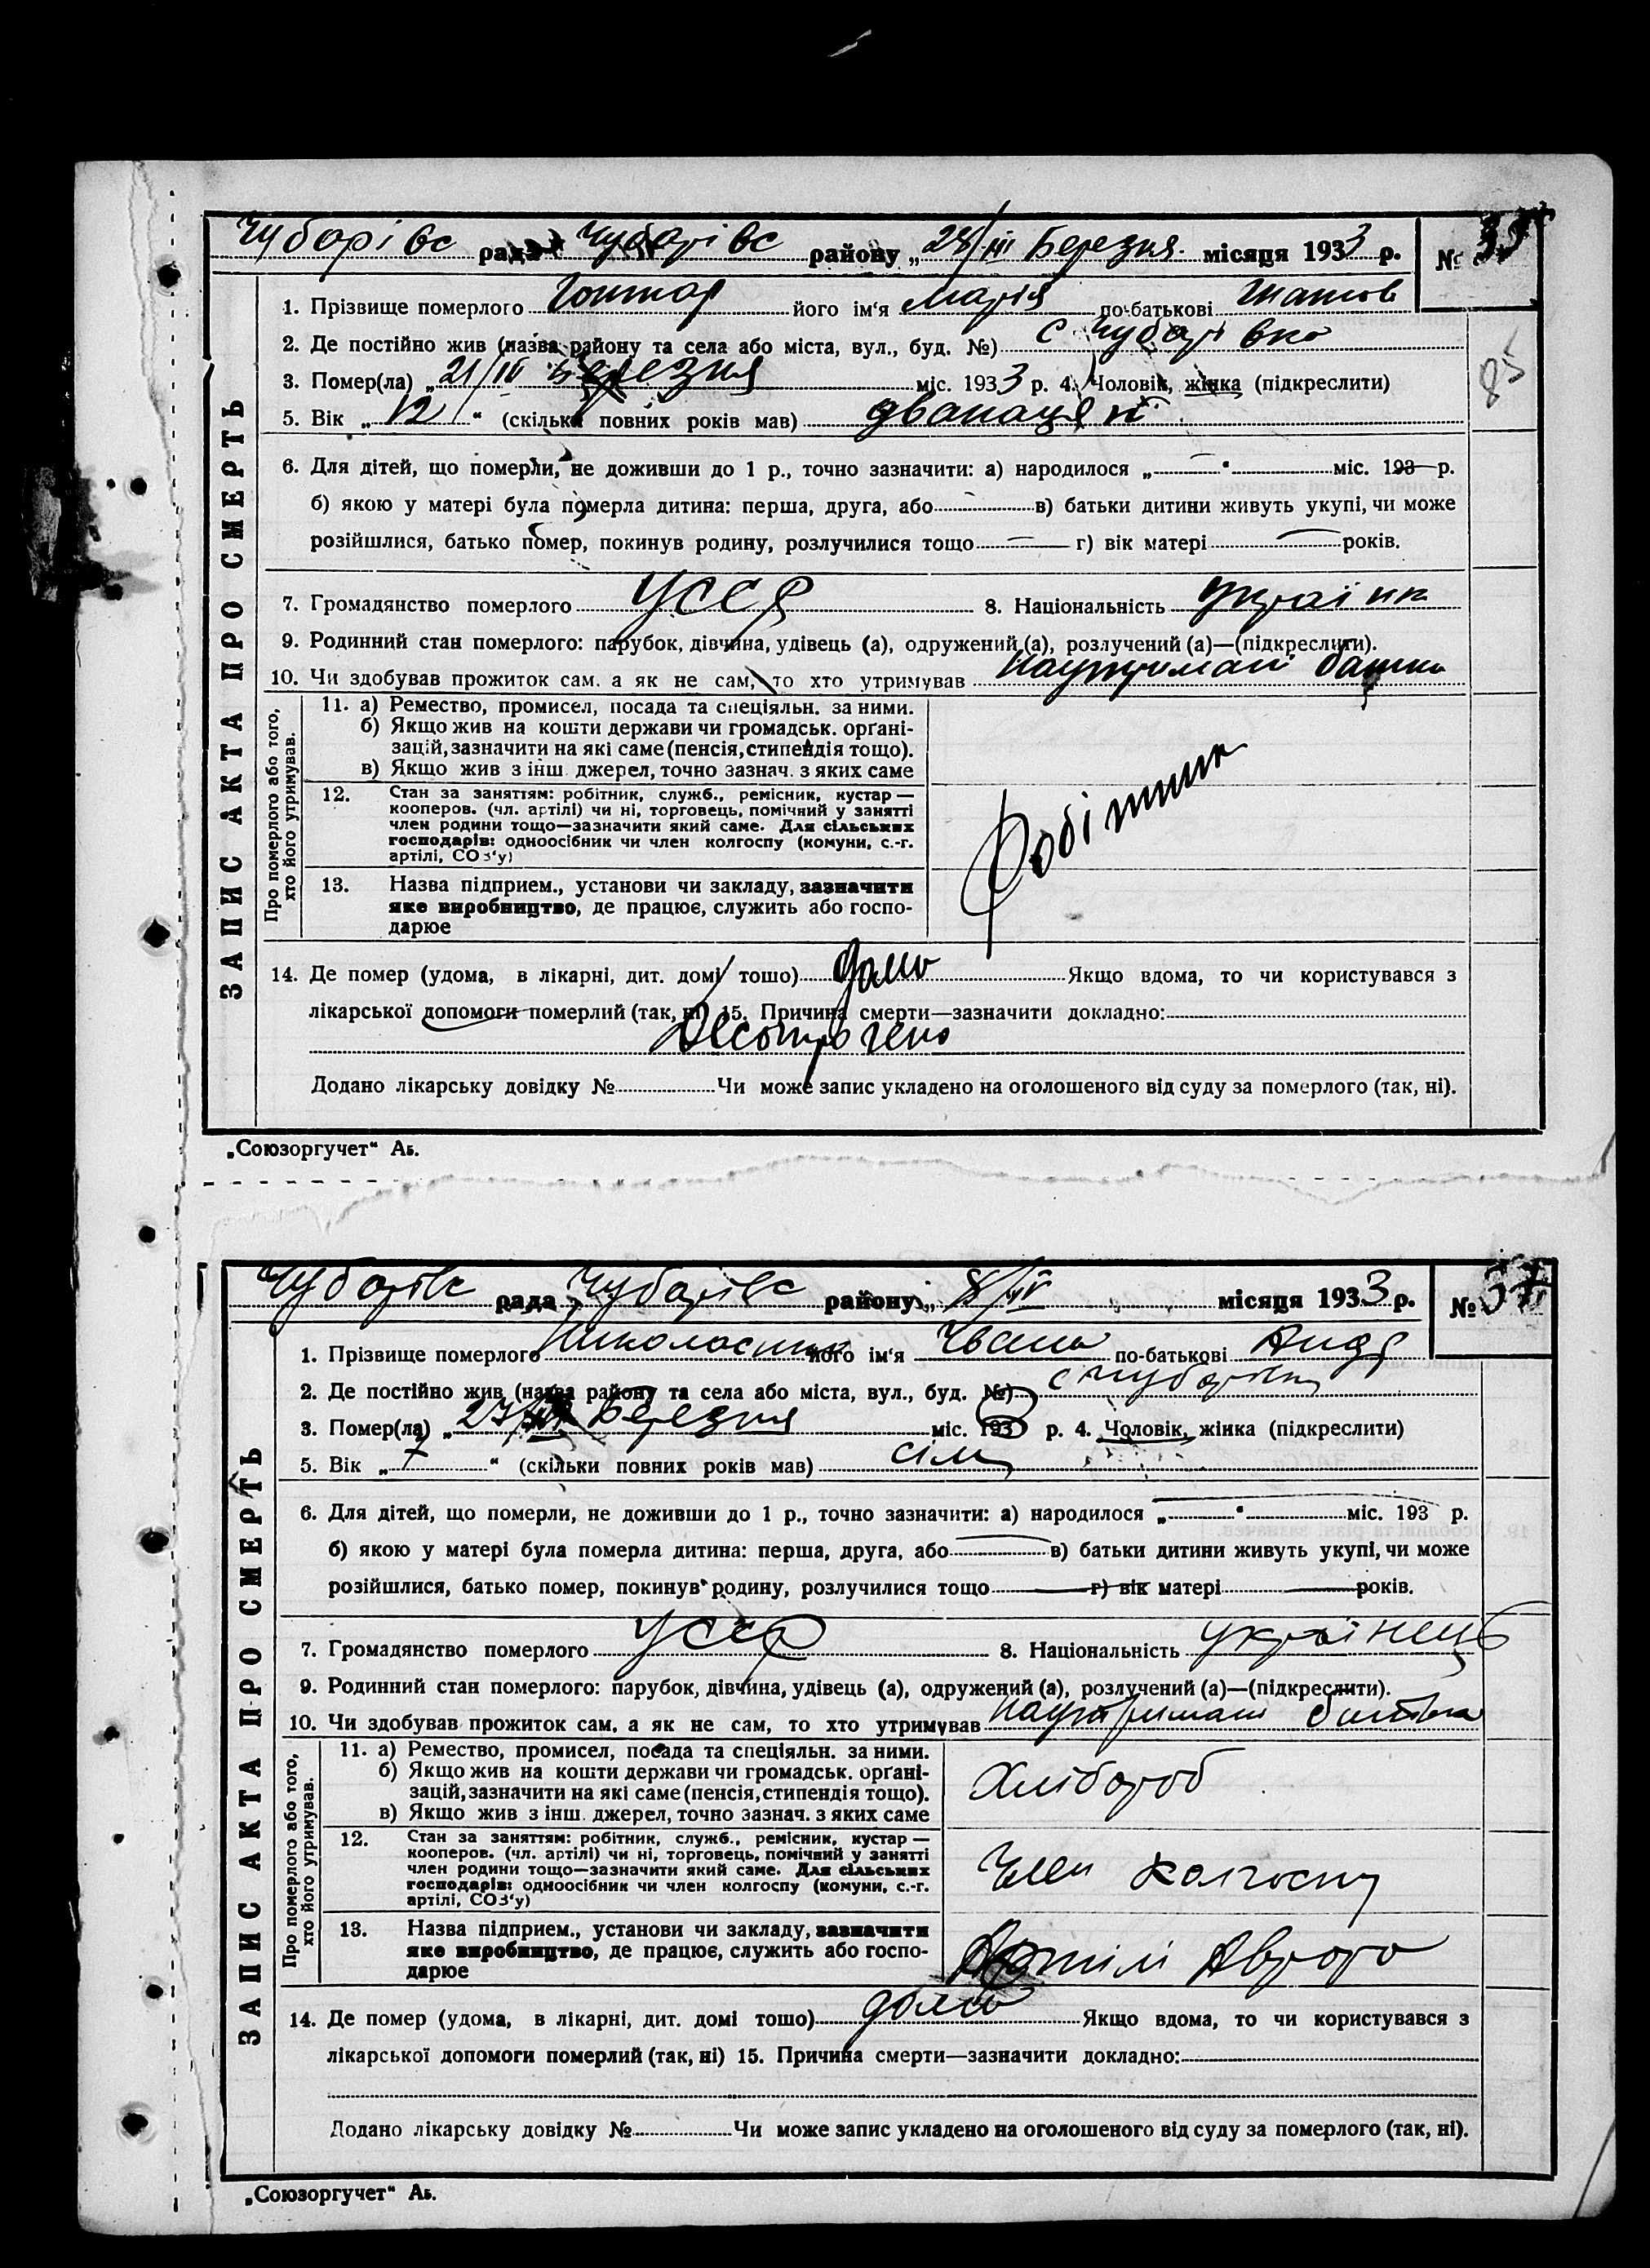 Чубарівс рада Чубарівс району „28/III Березня місяця 1933 р. №
ЗАПИС АКТА ПРО СМЕРТЬ
1. Прізвище померлого його ім‘я Марія по-батькові
2. Де постійно жив (назва району та села або міста, вул., буд. №) с Чубарівко
3. Помер(ла) „21/III Березня міс. 1933 р. 4. Чоловік, жінка (підкреслити)
85
5. Вік „12“ (скільки повних років мав) дванацять
6. Для дітей, що померли, не доживши до 1 р., точно зазначити: а) народилося „ “ міс. 193 р.
б) якою у матері була померла дитина: перша, друга, або в) батьки дитини живуть укупі, чи може
розійшлися, батько помер, покинув родину, розлучилися тощо г) вік матері років.
7. Громадянство померлого УССР 8. Національність україн
9. Родинний стан померлого: парубок, дівчина, удівець (а), одружений (а), розлучений (а)—(підкреслити).
10. Чи здобував прожиток сам, а як не сам, то хто утримував наутримані батька
Про померлого або того, хто його утримував.
11. а) Ремество, промисел, посада та спеціяльн. за ними.
б) Якщо жив на кошти держави чи громадськ. орґані-
зацій, зазначити на які саме (пенсія, стипендія тощо).
в) Якщо жив з інш. джерел, точно зазнач. з яких саме
Робітник
12. Стан за заняттям: робітник, служб., ремісник, кустар —
кооперов. (чл. артілі) чи ні, торговець, помічний у занятті
член родини тощо—зазначити який саме. Для сільських
господарів: одноосібник чи член колгоспу (комуни, с.-г.
артілі, СОЗ‘у)
13. Назва підприєм., установи чи закладу, зазначити
яке виробництво, де працює, служить або госпо-
дарює
14. Де помер (удома, в лікарні, дит. домі тошо) дома Якщо вдома, то чи користувався з
лікарської допомоги померлий (так, ні) 15. Причина смерти—зазначити докладно:
Додано лікарську довідку № Чи може запис укладено на оголошеного від суду за померлого (так, ні).
„Союзоргучет“ Аь.
Чубарівс рада Чубарівс району „8/III місяця 1933 р. № 37
ЗАПИС АКТА ПРО СМЕРТЬ
1. Прізвище померлого його ім‘я по-батькові Андр
2. Де постійно жив (назва району та села або міста, вул., буд. №)
3. Помер(ла) „27 Березня міс. 1933 р. 4. Чоловік, жінка (підкреслити)
5. Вік „7“ (скільки повних років мав) сім
6. Для дітей, що померли, не доживши до 1 р., точно зазначити: а) народилося „ “ міс. 193 р.
б) якою у матері була померла дитина: перша, друга, або в) батьки дитини живуть укупі, чи може
розійшлися, батько помер, покинув родину, розлучилися тощо г) вік матері років.
7. Громадянство померлого УССР 8. Національність українець
9. Родинний стан померлого: парубок, дівчина, удівець (а), одружений (а), розлучений (а)—(підкреслити).
10. Чи здобував прожиток сам, а як не сам, то хто утримував наутримані батька
Про померлого або того, хто його утримував.
11. а) Ремество, промисел, посада та спеціяльн. за ними.
б) Якщо жив на кошти держави чи громадськ. орґані-
зацій, зазначити на які саме (пенсія, стипендія тощо).
в) Якщо жив з інш. джерел, точно зазнач. з яких саме
Хлібороб
12. Стан за заняттям: робітник, служб., ремісник, кустар —
кооперов. (чл. артілі) чи ні, торговець, помічний у занятті
член родини тощо—зазначити який саме. Для сільських
господарів: одноосібник чи член колгоспу (комуни, с.-г.
артілі, СОЗ‘у)
Член колгоспу
13. Назва підприєм., установи чи закладу, зазначити
яке виробництво, де працює, служить або госпо-
дарює
Артілі Аврора
14. Де помер (удома, в лікарні, дит. домі тошо) дома Якщо вдома, то чи користувався з
лікарської допомоги померлий (так, ні) 15. Причина смерти—зазначити докладно:
Додано лікарську довідку № Чи може запис укладено на оголошеного від суду за померлого (так, ні).
„Союзоргучет“ Аь.